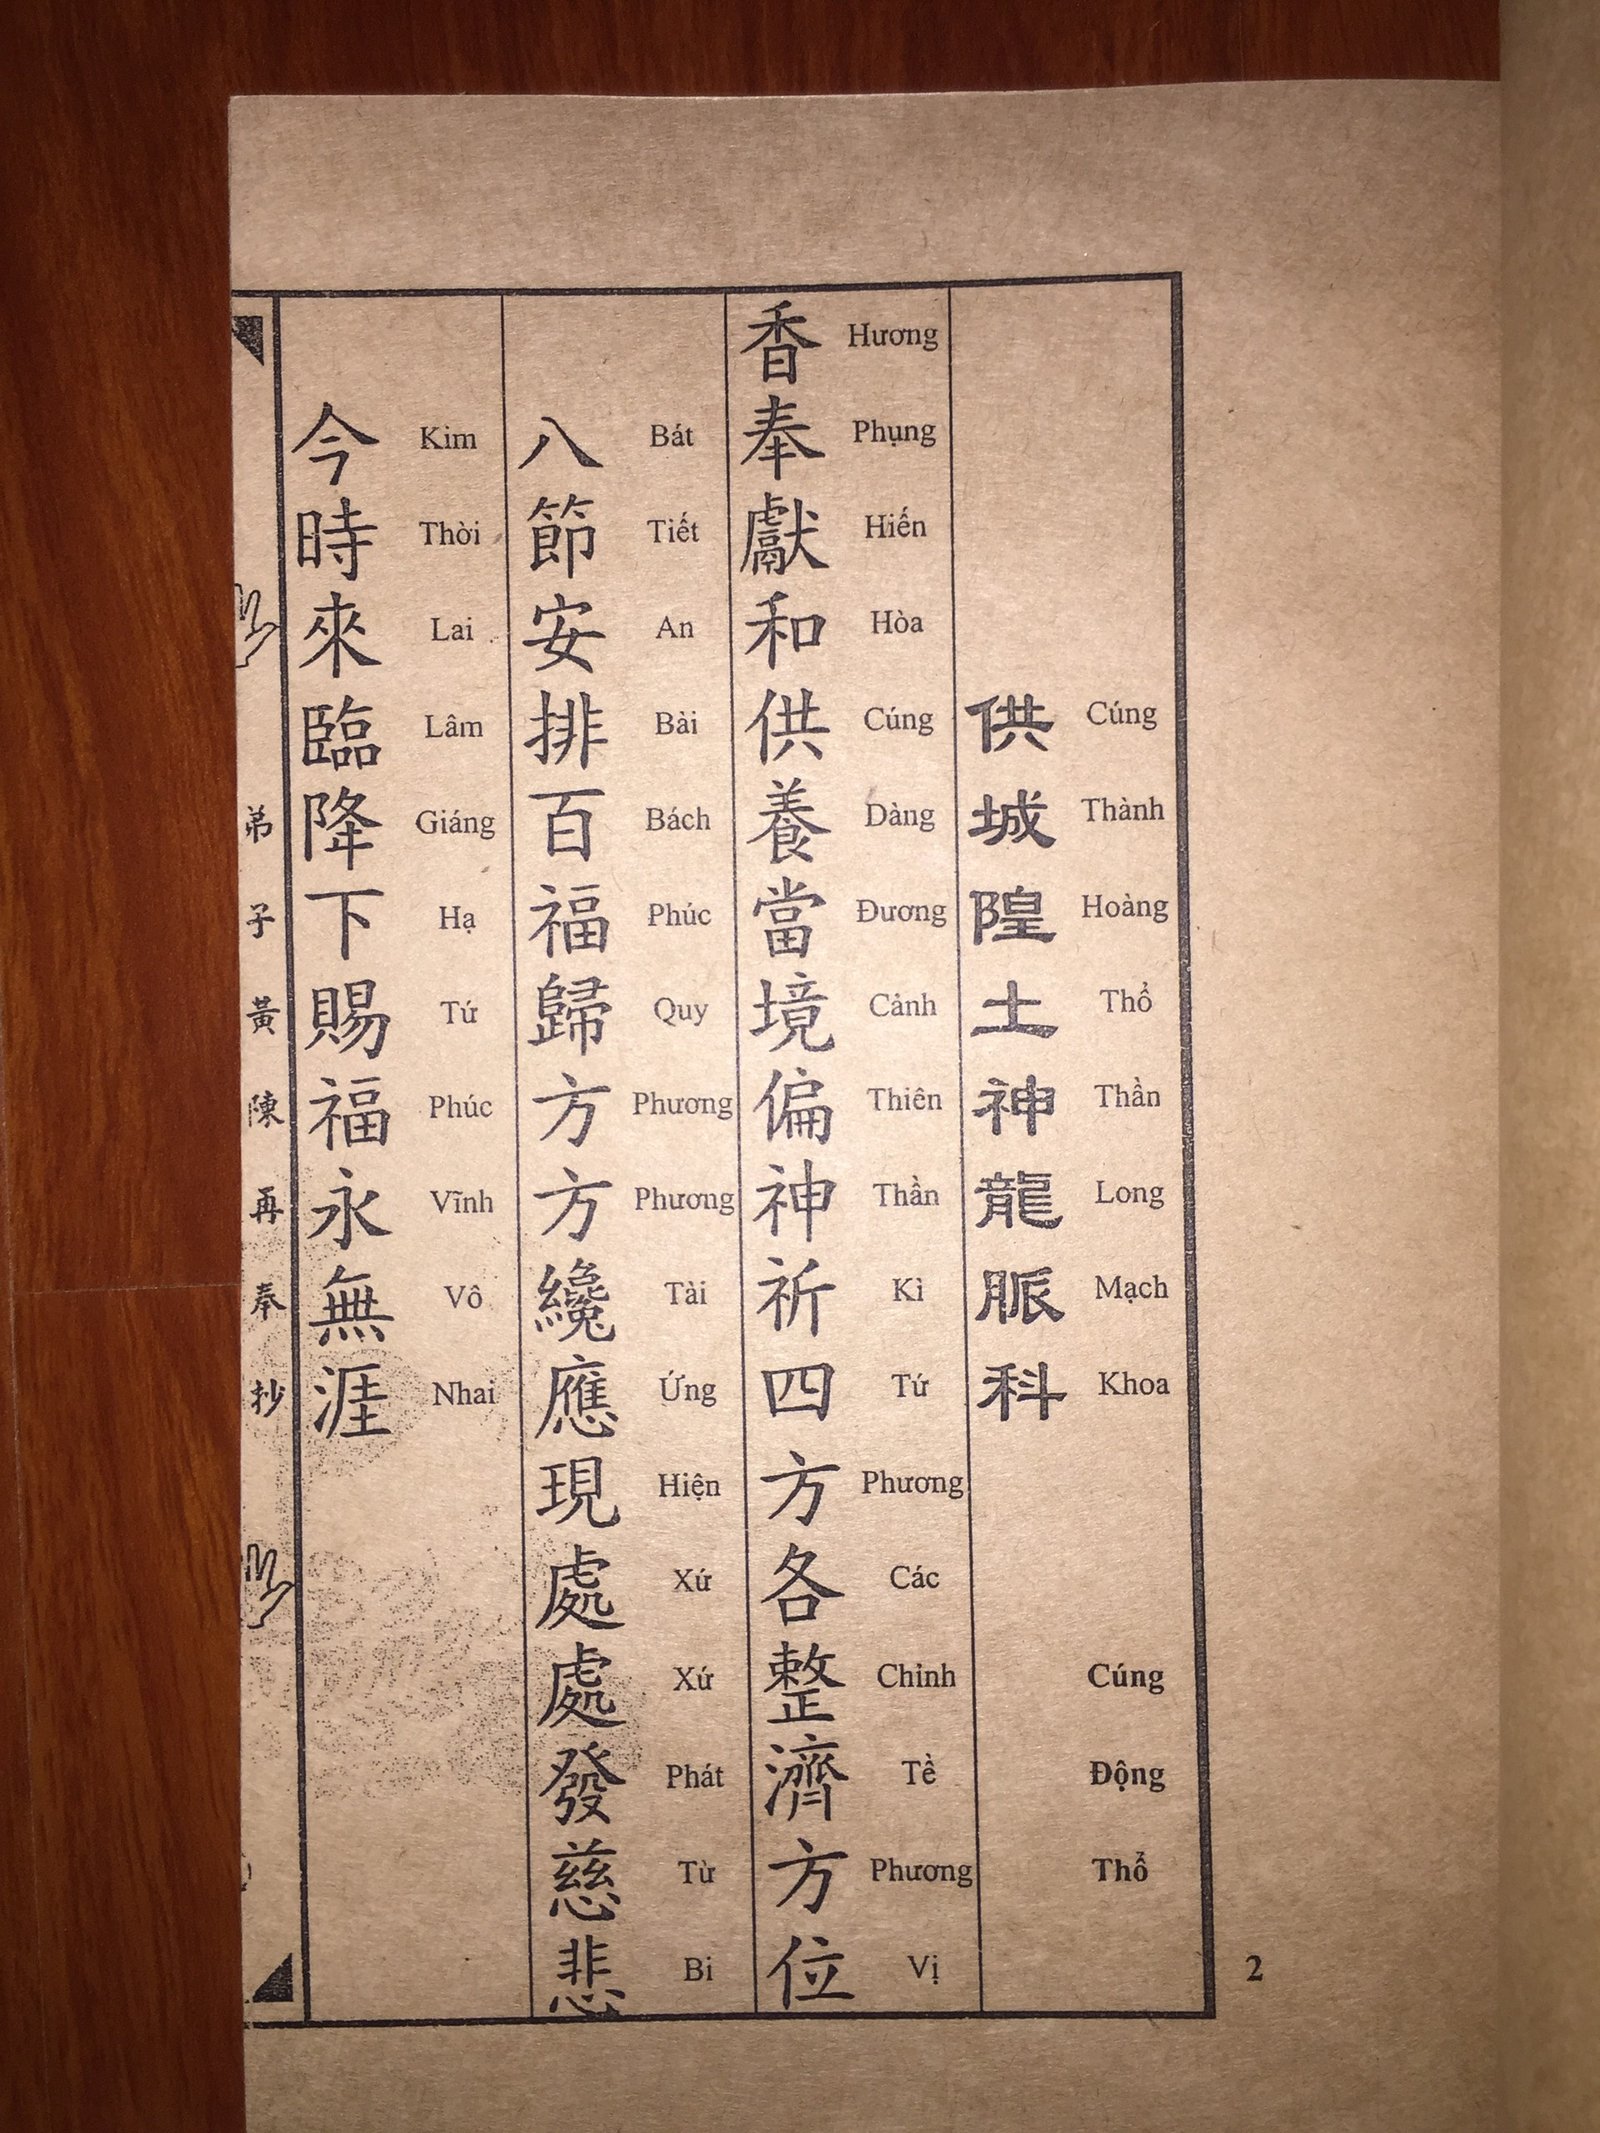 供城隍土神龍脈科
Cúng Thành Hoàng Thổ Thần Long Mạch Khoa
Cúng Động Thổ
香奉獻和供養當境偏神祈四方各整濟方位
Hương Phụng Hiến Hòa Cúng Dàng Đương Cảnh Thiên Thần Kì Tứ Phương Các Chỉnh Tề Phương Vị
八節安排百福歸方方纔應現處處發慈悲
Bát Tiết An Bài Bách Phúc Quy Phương Phương Tài Ứng Hiện Xứ Xứ Phát Từ Bi
今時來臨降下賜福永無涯
Kim Thời Lai Lâm Giáng Hạ Tứ Phúc Vĩnh Vô Nhai
弟子黃陳再奉抄
2